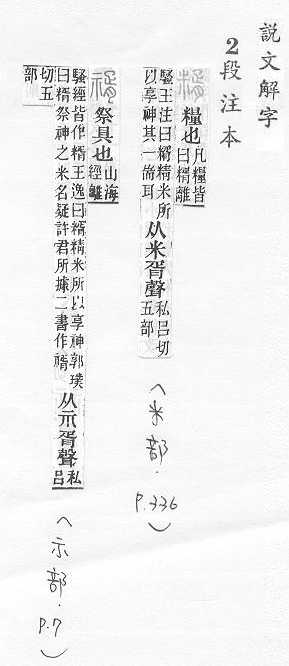 說文解字
2段注本
糈 糧也凡糧皆曰糈離
騷王注曰糈精米所以享神其一耑耳从米胥聲私呂切五部
(米部.P.336)
祭具也山海經離
騷經皆作糈王逸曰糈精米所以享神郭璞曰糈祭神之米名疑許君所據二書作䄔从示胥聲私呂
切五部
(示部.P.7)